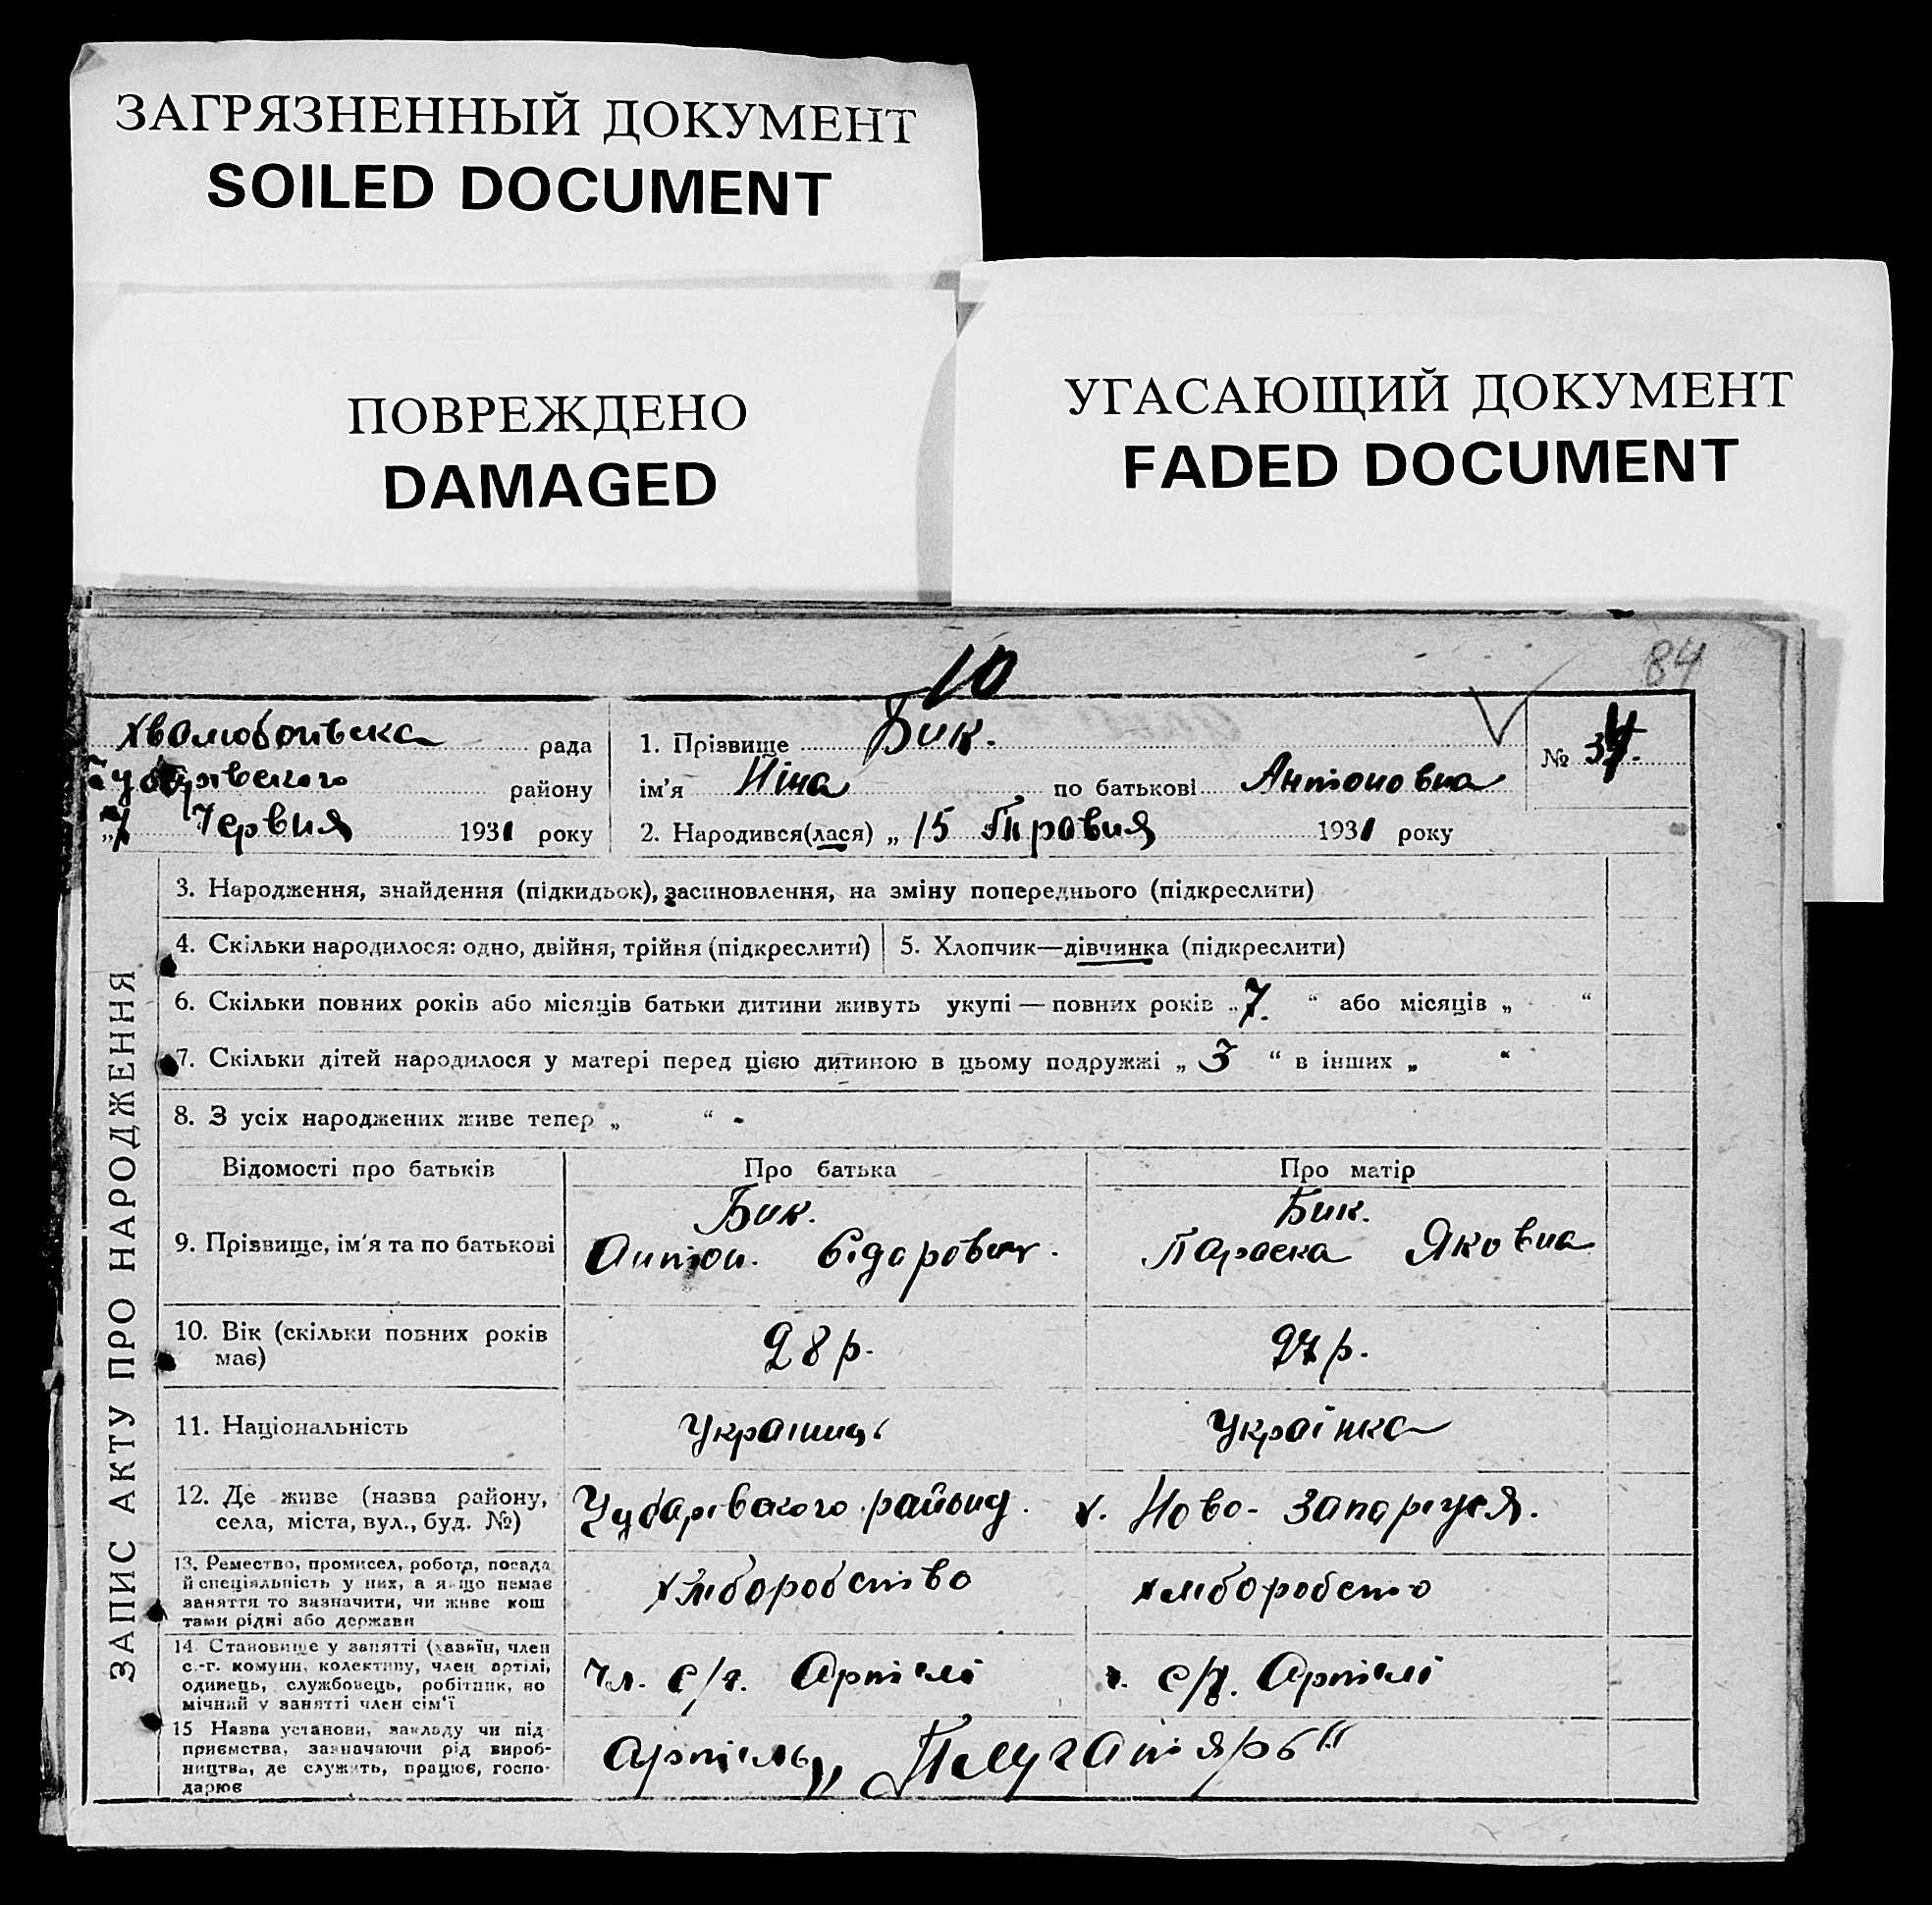 ЗАГРЯЗНЕННЫЙ ДОКУМЕНТ
SOILED DOCUMENT
ПОВРЕЖДЕНО
DAMAGED
УГАСАЮЩИЙ ДОКУМЕНТ
FADED DOCUMENT
84
10
рада
Чубарівського району
„7 Червня 1931 року
1. Прізвище Бик.
ім'я Ніна по батькові Антоновна
№ 34.
2. Народився(лася) „ 15 Травня 1931 року
ЗАПИС АКТУ ПРО НАРОДЖЕННЯ
3. Народження, знайдення (підкидьок), засиновлення, на зміну попереднього (підкреслити)
4. Скільки народилося: одно, двійня, трійня (підкреслити)
5. Хлопчик—дівчинка (підкреслити)
6. Скільки повних років або місяців батьки дитини живуть укупі — повних років „ 7. “ або місяців „ “
7. Скільки дітей народилося у матері перед цією дитиною в цьому подружжі „ 3 “ в інших „ “
8. З усіх народжених живе тепер „ “
Відомості про батьків Про батька Про матір
9. Прізвище, ім'я та по батькові
Бик.
Антон. Сідорович.
Бик.
Параска Яковна
10. Вік (скільки повних років
має)
28 р.
27 р.
11. Національність
Українець
Українка
12. Де живе (назва району,
села, міста, вул., буд. №)
Чубарівского району. х. Ново-
13. Ремество, промисел, робота, посада
й спеціяльність у них, а якщо немає
заняття то зазначити, чи живе кош
тами рідні або держави
хліборобство
хліборобсто
14. Становище у занятті (хазяїн, член
с.-г. комуни, колективу, член артілі,
одинець, службовець, робітник, по
мічний у занятті член сім'ї
чл. с/г. Артілі
ч. с/г. Артілі
15 Назва установи, закладу чи під-
приємства, зазначаючи рід вироб-
ництва, де служить, працює, госпо-
дарює
Артіль „Плугатярь“